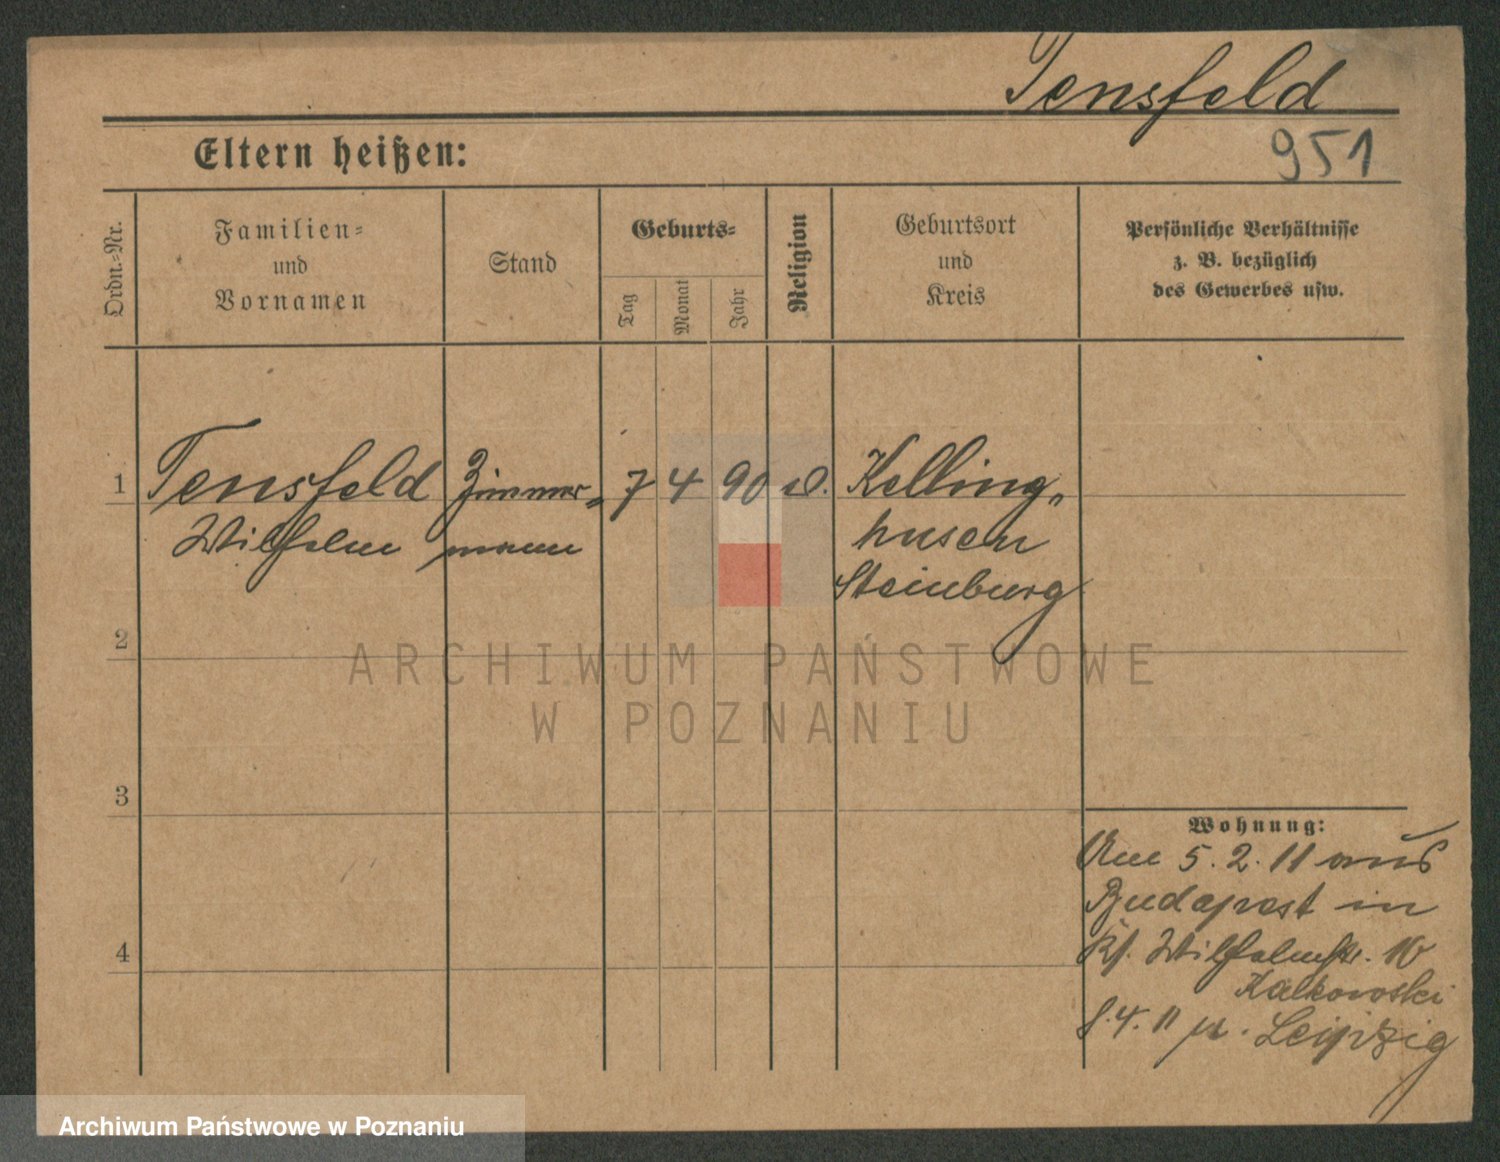 Tensfeld
951
Eltern heißen:
Ordn.-Nr.
Familien-
und
Vornamen
Stand
Geburts-
Tag
Monat
Jahr
Religion
Geburtsort
und
Kreis
Persönliche Verhältnisse
z. B. bezüglich
des Gewerbes usw.
1 Tensfeld Zimmer- 7 4 90 Kelling-
Wilhelm mann husen
Steinburg
2
ARCHIWUM PAŃSTWOWE
W POZNANIU
3
Wohnung:
Am 5. 2. 11 aus
Budapest in
Wilhelmstr. 16
4
Kalkowski
8. 4. 11 n. Leipzig
Archiwum Państwowe w Poznaniu